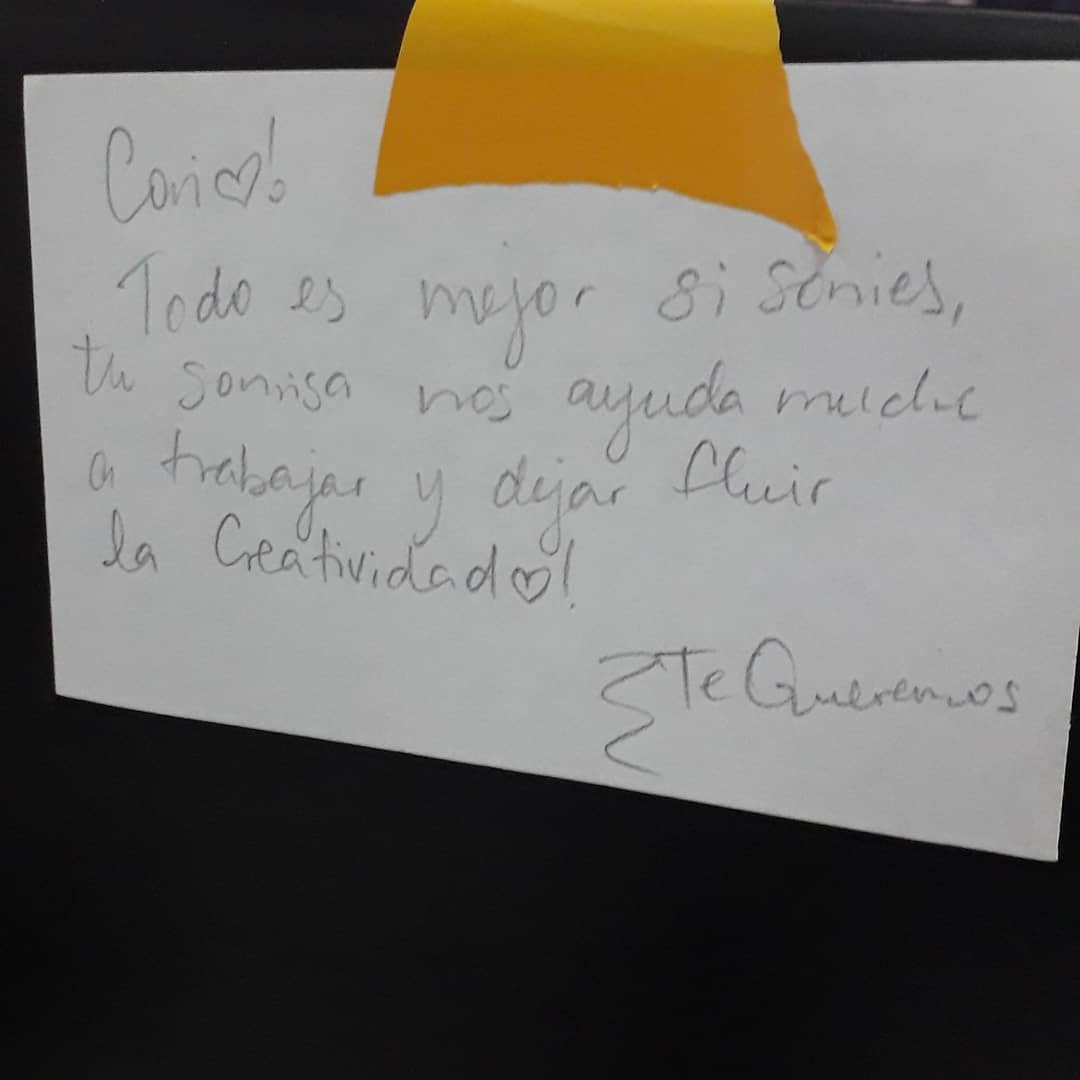 Cori♡!
Todo es mejor si sonries,
tu sonrisa nos ayuda mucho
a trabajar y dejar fluir
la Creatividad♡!
Te Queremos